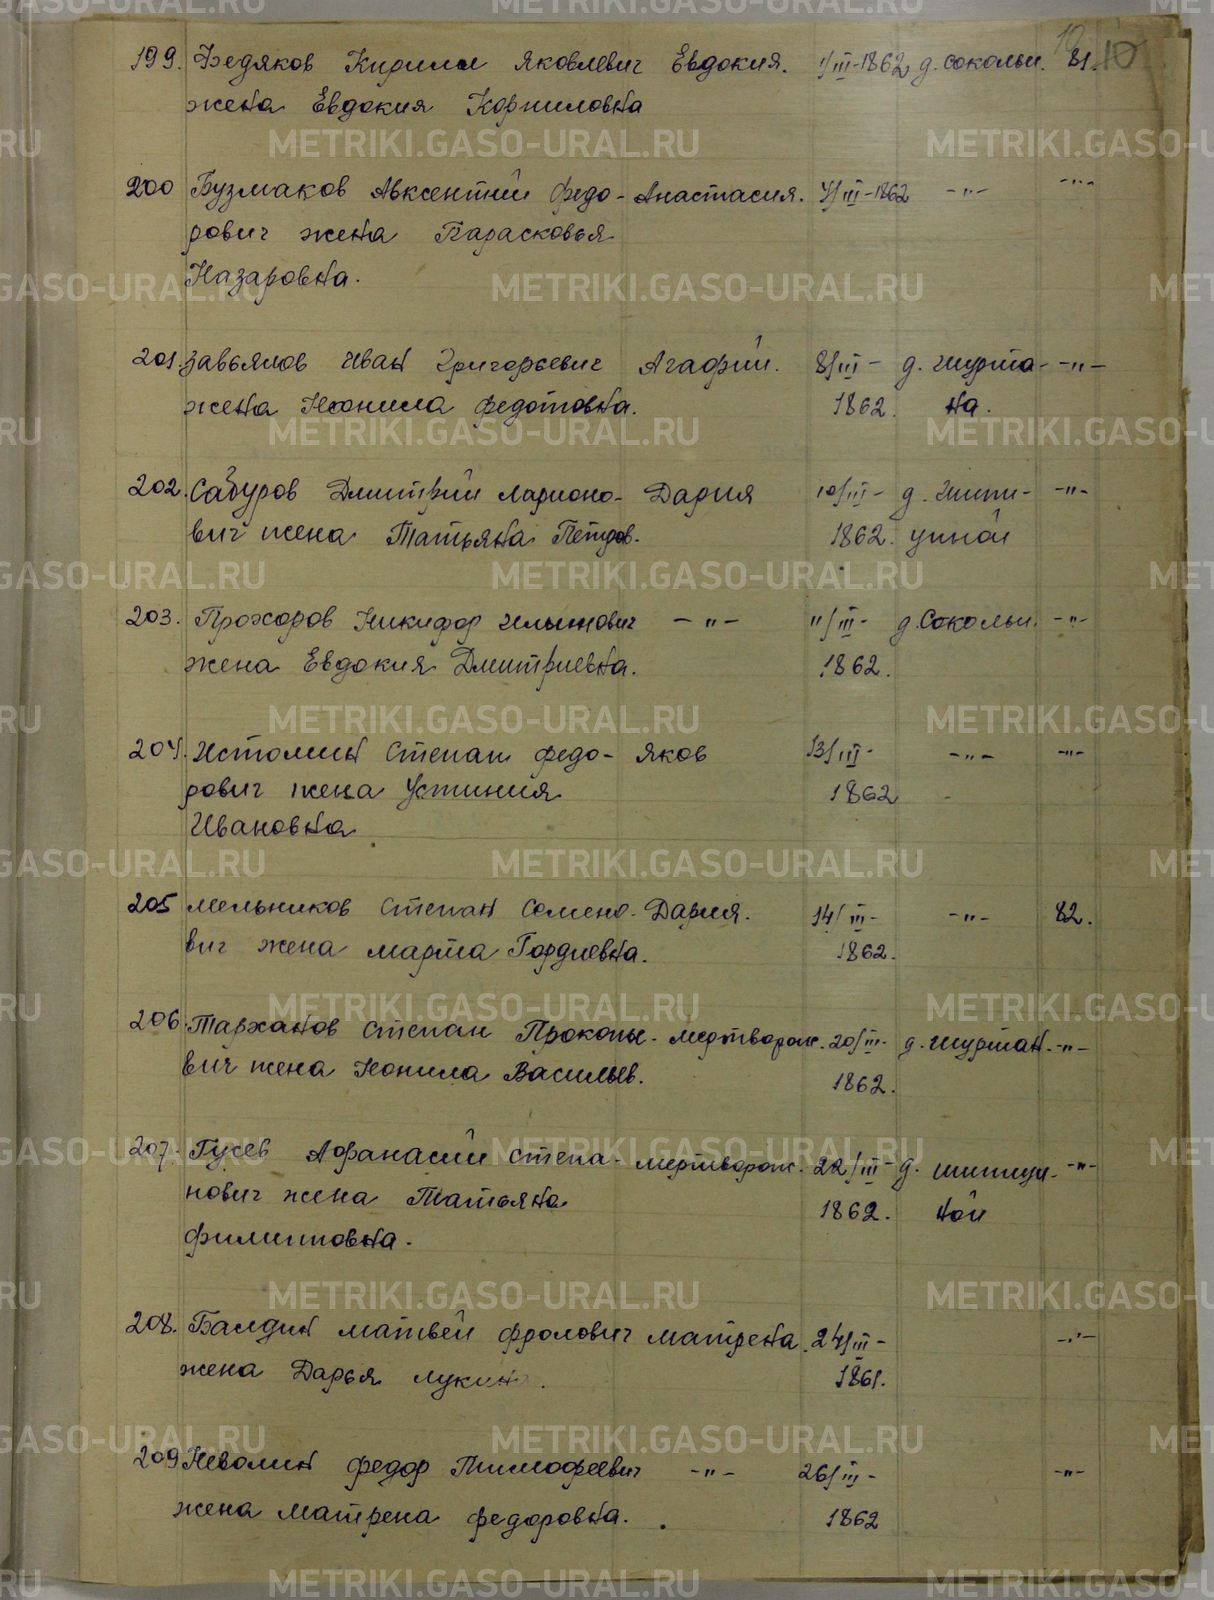 10 10
199. Федяков Кирилл Яковлевич Евдокия. 1/III-1862 д. сокольи. 81.
жена Евдокия Корниловна
200 Бузмаков Авксентий Федо- Анастасия. 7/III-1862 -"- -"-
рович жена Парасковья
Назаровна.
201. Завьялов Иван Григорьевич Агафий. 8/III- д. -"-
жена Неонила Федотовна. 1862. на.
202. Сабуров Дмитрий Ларионо- Дария 10/III- д. -"-
вич жена Татьяна Петров. 1862.
203. Прохоров Никифор -"- 11/III- д. Сокольи. -"-
жена Евдокия Дмитриевна. 1862.
204. Истомин Степан Федо- Яков 13/III- -"- -"-
рович жена Устиния 1862
Ивановна.
205 Мельников Степан Семено- Дария. 14/III- -"- 82.
вич жена Марта Гордиевна. 1862.
206. Тарханов Степан Прокопье- мертворож. 20/III- д. -"-
вич жена Неонила Васильев. 1862.
207. Гусев Афанасий Степа- мертворож. 22/III- д. -"-
нович жена Татьяна 1862. ной
Филипповна.
208. Балдин Матвей Фролович Матрена. 24/III- -"-
жена Дарья Лукин. 1861.
209 Неволин Федор Тимофеевич -"- 26/III- -"-
жена Матрена Федоровна. 1862
METRIKI.GASO-URAL.RU